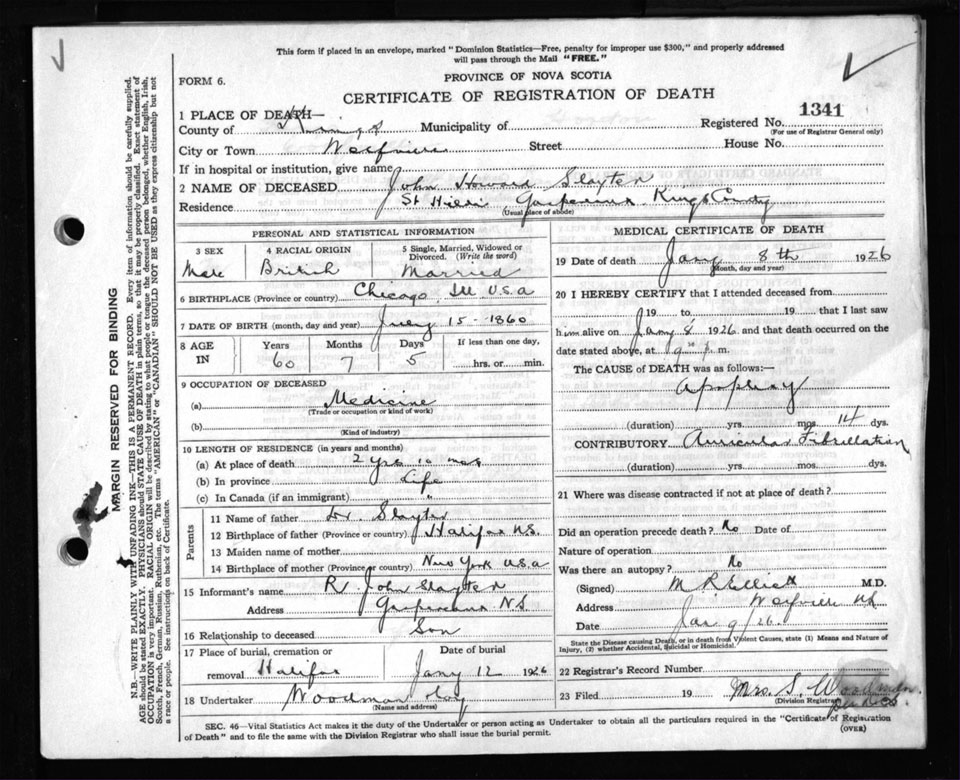 This form if placed in an envelope, marked "Dominion Statistics—Free, penalty for improper use $300," and properly addressed
will pass through the Mail "FREE."
FORM 6.
PROVINCE OF NOVA SCOTIA
CERTIFICATE OF REGISTRATION OF DEATH
1 PLACE OF DEATH—
Registered No. 1341
County of Municipality of (For use of Registrar General only)
City or Town Street House No.
If in hospital or institution, give name
2 NAME OF DECEASED John Howard Slayter
Residence Gaspereau Kings County
(Usual place of abode)
PERSONAL AND STATISTICAL INFORMATION
3 SEX 4 RACIAL ORIGIN 5 Single, Married, Widowed or Divorced. (Write the word)
Male British Married
6 BIRTHPLACE (Province or country) Chicago, Ill U.S.A
7 DATE OF BIRTH (month, day and year) 15-1860
8 AGE IN Years Months Days If less than one day,
60 7 5 hrs. or min.
9 OCCUPATION OF DECEASED
(a) Medicine
(Trade or occupation or kind of work)
(b)
(Kind of industry)
10 LENGTH OF RESIDENCE (in years and months)
(a) At place of death 2 yrs 10 mos
(b) In province Life
(c) In Canada (if an immigrant) "
Parents
11 Name of father Dr. Slayter
12 Birthplace of father (Province or country) Halifax N.S.
13 Maiden name of mother
14 Birthplace of mother (Province or country) New York U.S.A
15 Informant's name R John Slayter
Address Gaspereau N.S
16 Relationship to deceased Son
17 Place of burial, cremation or removal Date of burial
Halifax Jany 12 1926
18 Undertaker Woodman
(Name and address)
MEDICAL CERTIFICATE OF DEATH
19 Date of death Jany 8th 1926
(Month, day and year)
20 I HEREBY CERTIFY that I attended deceased from
19 to 19 that I last saw
him alive on Jany 8 1926 and that death occurred on
date stated above, at 9 P. m.
The CAUSE of DEATH was as follows:—
Apoplexy
(duration) yrs. mos. 14 dys.
CONTRIBUTORY Auricular Fibrillation
(duration) yrs. mos. dys.
21 Where was disease contracted if not at place of death?
Did an operation precede death? No Date of
Nature of operation
Was there an autopsy? No
(Signed) M R Elliott M.D.
Address Wolfville NS
Date Jan 9/26.
State the Disease causing Death, or in death from Violent Causes, state (1) Means and Nature of
Injury, (2) whether Accidental, Suicidal or Homicidal.
22 Registrar's Record Number
23 Filed 19 Mrs. S. Woodman
(Division Registrar)
SEC. 46—Vital Statistics Act makes it the duty of the Undertaker or person acting as Undertaker to obtain all the particulars required in the "Certificate of Registration
of Death" and to file the same with the Division Registrar who shall issue the burial permit.
(OVER)
MARGIN RESERVED FOR BINDING
N.B.—WRITE PLAINLY WITH UNFADING INK—THIS IS A PERMANENT RECORD. Every item of information should be carefully supplied.
AGE should be stated EXACTLY. PHYSICIANS should STATE CAUSE OF DEATH in plain terms, so that it may be properly classified. Exact statement of
OCCUPATION is very important. RACIAL ORIGIN will be described by stating to what people or tongue the deceased person belonged, whether English, Irish,
Scotch, French, German, Russian, Ruthenian, etc. The terms "AMERICAN" or "CANADIAN" SHOULD NOT BE USED as they express citizenship but not
a race or people. See instructions on back of Certificate.